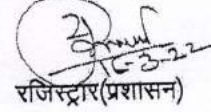 16-3-22
रजिस्ट्रार(प्रशासन)